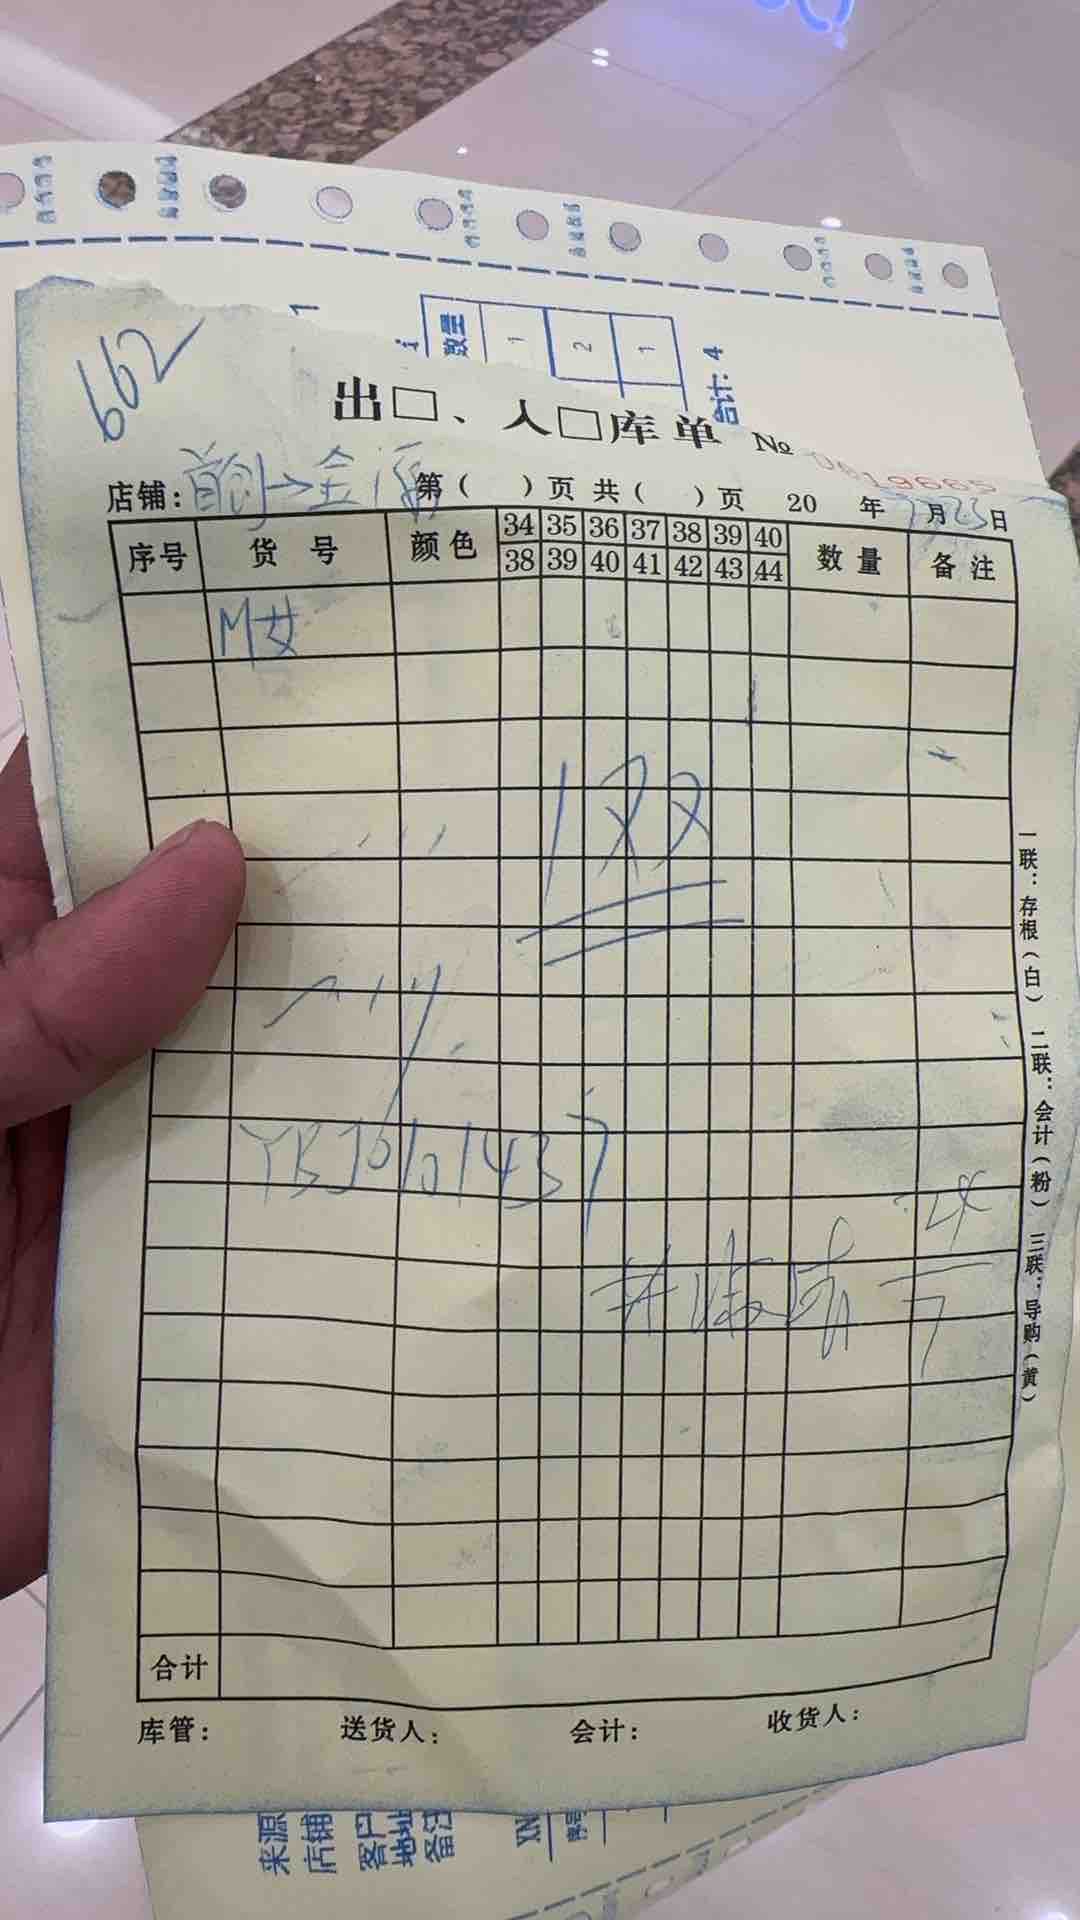 1
数量
1
2
1
合计: 4
662
出□、入□库单 №
0619665
店铺: 首创→金源 第( )页 共( )页 20 年 7月23日
序号 货号 颜色 34 35 36 37 38 39 40 数量 备注
38 39 40 41 42 43 44
M女
188
YBJ6101437
合计
库管: 送货人: 会计: 收货人:
一联:存根(白) 二联:会计(粉) 三联:导购(黄)
来源
店铺
客户
地址
备注
XN
序号